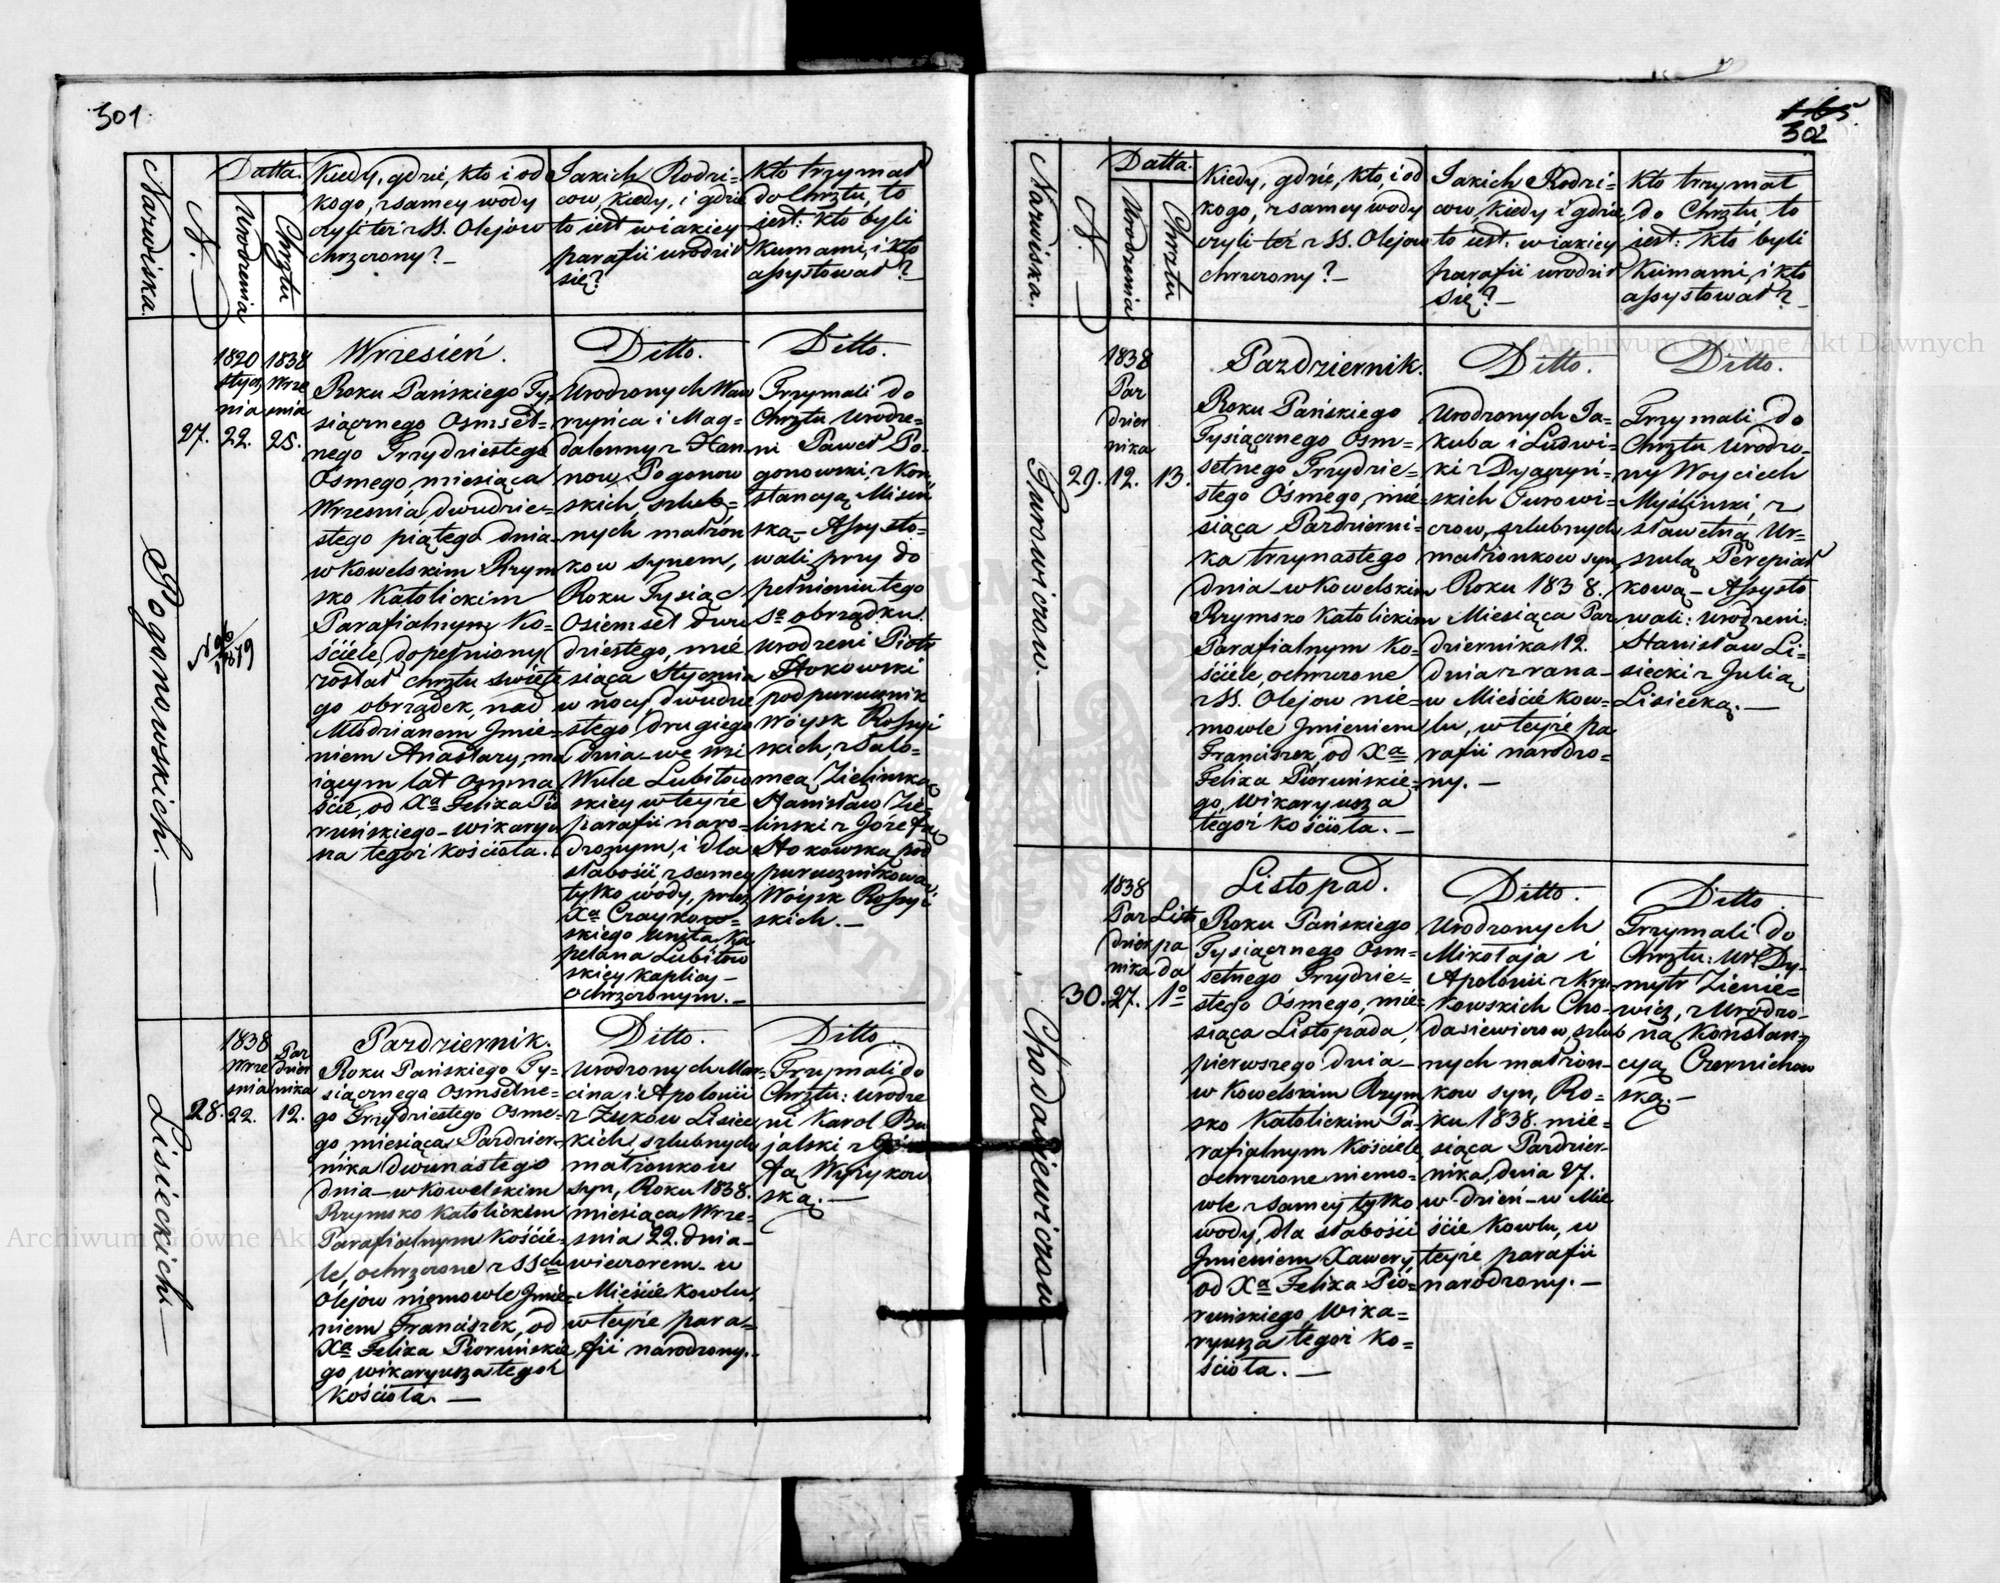 301.
Nazwiska.
N.
Datta.
Urodzenia
Chrztu
Kiedy, gdzie, kto i od
kogo, z samey wody
czyli też z SS. Olejow
chrzczony? —
Jakich Rodzi=
cow, kiedy, i gdzie
to iest w iakiey
parafii urodził
się?
Kto trzymał
do Chrztu, to
iest: kto byli
Kumami, i kto
assystował? —
Pogonowskich. —
27.
1820
stycz
nia
22.
1838
Wrze
snia
25.
Wrzesień.
Roku Pańskiego Ty=
siącznego Osmset=
nego Trzydziestego
Ósmego, miesiąca
Wrzesnia, dwudzie=
stego piątego dnia
w Kowelskim Rzym
sko Katolickim
Parafialnym Ko=
ściele, dopełniony
został chrztu święte
go obrządek, nad
Młodzianem Jmie=
niem Anastazy, ma
iącym lat ośmna
ście, od Xa Felixa Pio
ruńskiego — wikaryu
sza tegoż Kościoła.
Ditto.
Urodzonych Waw
rzyńca i Mag=
daleny z Han=
now Pogonow
skich, szlub=
nych małżon
kow synem,
Roku Tysiąc
Osiemset dwu
dziestego, mie
siąca Stycznia
w nocy dwudzie
stego, drugiego
dnia — we wsi
Wulce Lubitow
skiey w teyże
parafii naro=
dzonym, i dla
słabości z samey
tylko wody, przez
Xa Czaykow=
skiego Unyta, Ka
pelana Lubitow
skiey kaplicy —
ochrzczonym. —
Ditto.
Trzymali do
Chrztu Urodze=
ni Paweł Po=
gonowski, z Kon=
stancyą Misiu
ską — Assysto=
wali przy do
pełnieniu tego
So obrządku
Urodzeni Piotr
Stokowski
podporucznik
Woysk Rossyi
skich, z Salo=
meą Zielinską
Stanisław Zie=
linski z Józefą
Stokowską pod
porucznikową
Woysk Rossyi
skich. —
Lisieckich. —
28.
1838
Wrze
snia
22.
Paz
dzier
nika
12.
Pazdziernik.
Roku Pańskiego Ty=
siącznego Osmsetne=
go Trzydziestego Osme=
go, miesiąca Pazdzier=
nika dwunastego
dnia — w Kowelskim
Rzymsko Katolickim
Parafialnym Koście=
le, ochrzczone z SSch
Olejow niemowle Jmie=
niem Franciszek, od
Xa Felixa Pioruńskie
go, wikaryusza tegoż
Kościoła. —
Ditto.
Urodzonych Mar=
cina, i Apolonii
z Zuków Lisiec
kich, szlubnych
małżonkow
syn, Roku 1838.
miesiąca Wrze=
snia 22. dnia —
wieczorem — w
Mieście Kowlu,
w teyże para=
fii narodzony. —
Ditto.
Trzymali do
Chrztu: Urodze
ni Karol Bu
jalski z
Wyżykow
ską. —
302
Nazwiska.
N.
Datta.
Urodzenia
Chrztu
Kiedy, gdzie, kto, i od
kogo, z samey wody
czyli też z SS. Olejow
chrzczony? —
Jakich Rodzi=
cow, kiedy i gdzie,
to iest. w iakiey
parafii urodził
się? —
Kto trzymał
do Chrztu, to
iest: kto byli
Kumami, i kto
assystował? —
Turowiczow. —
29.
1838
Paz
dzier
nika
12.
13.
Pazdziernik.
Roku Pańskiego
Tysiącznego Osm=
setnego Trzydzie=
stego Ósmego, mie=
siąca Pazdzierni=
ka trzynastego
dnia — w Kowelskim
Rzymsko Katolickim
Parafialnym Ko=
ściele, ochrzczone
z SS. Olejow nie=
mowle Jmieniem
Franciszek, od Xa
Felixa Pioruńskie=
go, Wikaryusza
tegoż Kościoła. —
Ditto.
Urodzonych Ja=
kuba i Ludwi=
ki z Dyaczyń=
skich Turowi=
czow, szlubnych
małżonkow syn,
Roku 1838.
Miesiąca Paz
dziernika 12.
dnia z rana —
w Mieście Kow=
lu, w teyże pa
rafii narodzo=
ny. —
Ditto.
Trzymali do
Chrztu Urodzo=
ny Woyciech
Myśliński, z
sławetną Ur=
szulą Perepiał
kową — Assysto
wali: Urodzeni:
Stanisław Li=
siecki z Julią
Lisiecką. —
Chodasiewiczow —
30.
1838
Paz
dzier
nika
27.
Listo
pa
da
1o
Listopad.
Roku Pańskiego
Tysiącznego Osm=
setnego Trzydzie=
stego Ósmego, mie=
siąca Listopada,
pierwszego dnia —
w Kowelskim Rzym
sko Katolickim Pa=
rafialnym Kościele
ochrzczone niemo=
wle z samey tylko
wody, dla słabości
Jmieniem Xawery
od Xa Felixa Pio=
ruńskiego, Wika=
ryusza tegoż Ko=
ścioła. —
Ditto.
Urodzonych
Mikołaja i
Apolonii z Kru=
kowskich Cho=
dasiewiczow, szlub
nych małżon=
kow syn, Ro=
ku 1838. mie=
siąca Pazdzier=
nika, dnia 27.
w dzień — w Mie
ście Kowlu, w
teyże parafii
narodzony. —
Ditto.
Trzymali do
Chrztu: Ur. Dy=
mytr Zienie=
wicz, z Urodzo=
ną Konstan=
cyą Czernichow
ską. —
Archiwum Główne Akt Dawnych
Archiwum Główne Akt Dawnych